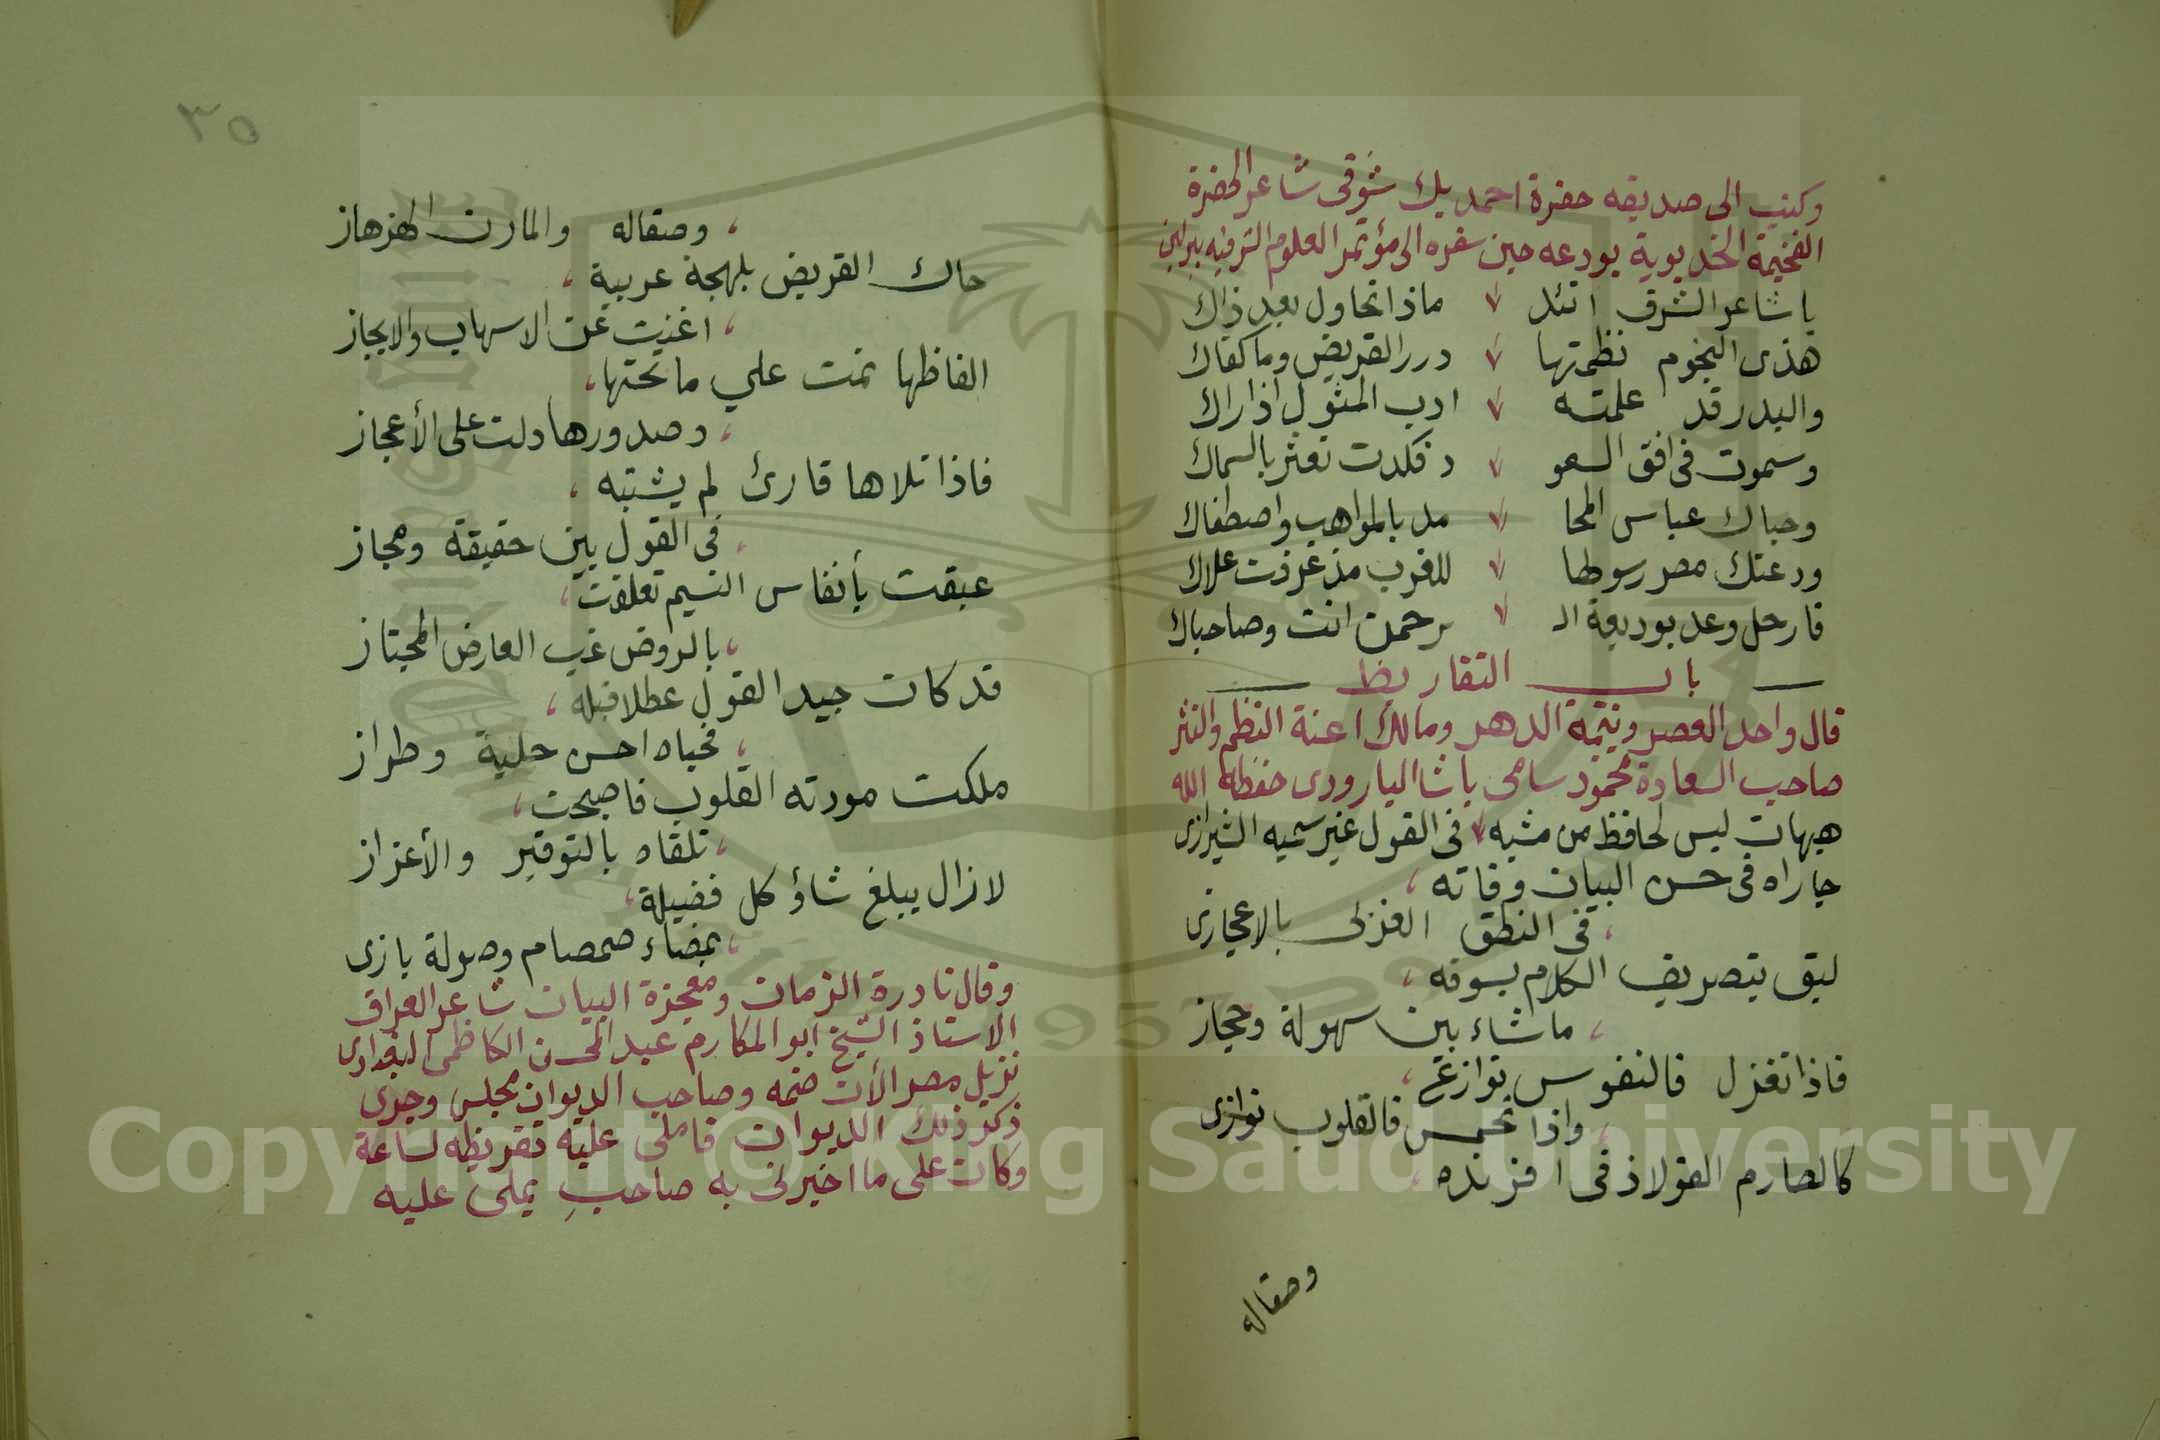 وكتب الى صديقه حضرة احمد بك شوقى شاعر الحضرة
الفخيمة الخديوية يودعه حين سفره الى مؤتمر العلوم الشرقيه ببرلين
يا شاعر الشرق اتئد ماذا تحاول بعد ذاك
هذى النجوم نظمتها درر القريض وما كفاك
والبدر قد علمته ادب المثول اذا راك
وسموت فى افق السعو د فكدت تعثر بالسماك
وحباك عباس المحا مد بالمواهب واصطفاك
ودعتك مصر رسولها للغرب مذ عرفت علاك
فارحل وعد بوديعة الـ رحمن انت وصاحباك
باب التقاريظ
قال واحد العصر ويتيمة الدهر ومالك اعنة النظم والنثر
صاحب السعادة محمود سامى باشا البارودى حفظه الله
هيهات ليس لحافظ من مشبه فى القول غير سميه الشيرازى
جاراه فى حسن البيان وفاته
فى النطق العزلى بالاعجازى
لبق بتصريف الكلام يسوقه
ما شاء بين سهولة وحجاز
فاذا تغزل فالنفوس نوازع
واذا تحمس فالقلوب نوازى
كالصارم الفولاذ فى افرنده
وصقاله
٣٥
وصقاله والمارن الهزهاز
حاك القريض بلهجة عربية
اغنت عن الاسهاب والايجاز
الفاظها نمت علي ما تحتها
وصدورها دلت على الأعجاز
فاذا تلاها قارئ لم يشتبه
فى القول بين حقيقة ومجاز
عبقت بأنفاس النسيم تعلقت
بالروض غب العارض المجتاز
قد كان جيد القول عطلا قبله
فحباه احسن حلية وطراز
ملكت مودته القلوب فاصبحت
تلقاه بالتوقير والأعزاز
لا زال يبلغ شاؤ كل فضيلة
بمضاء صمصام وصولة بازى
وقال نادرة الزمان ومعجزة البيان شاعر العراق
الاستاذ الشيخ ابو المكارم عبد المحسن الكاظمى البغدادى
نزيل مصر الأن ضمه وصاحب الديوان مجلس وجرى
ذكر ذلك الديوان فاملى عليه تقريظه لساعة
وكان على ما اخبرنى به صاحب يملى عليه
Copyright © King Saud University
1957